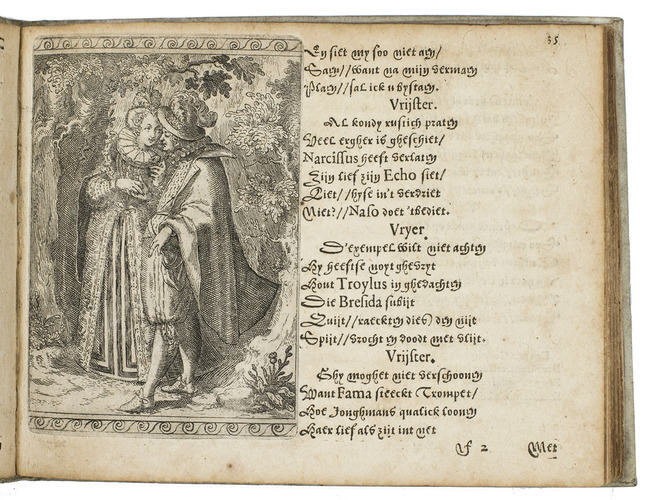 35
En siet my soo niet aen/
Saen//want na mijn vermaen
Plaen//sal ick u bystaen.
Vrijster.
Al kondy rustich praten
Veel ergher is gheschiet/
Narcissus heeft verlaten
Zijn lief zijn Echo siet/
Liet//hyse in't verdriet
Niet?//Naso doet 'tbediet.
Vryer.
D'exempel wilt niet achten
Hy heeftse noyt ghevryt
Hout Troylus in ghedachten
Die Bresida subijt
Quijt//raeckten dies den nijt
Spijt//vrocht en doodt met vlijt.
Vrijster.
Ghy moghet niet verschoonen
Want Fama steeckt Trompet/
Hoe Jonghmans qualick loonen
Haer lief als zijt int net
f 2 Met